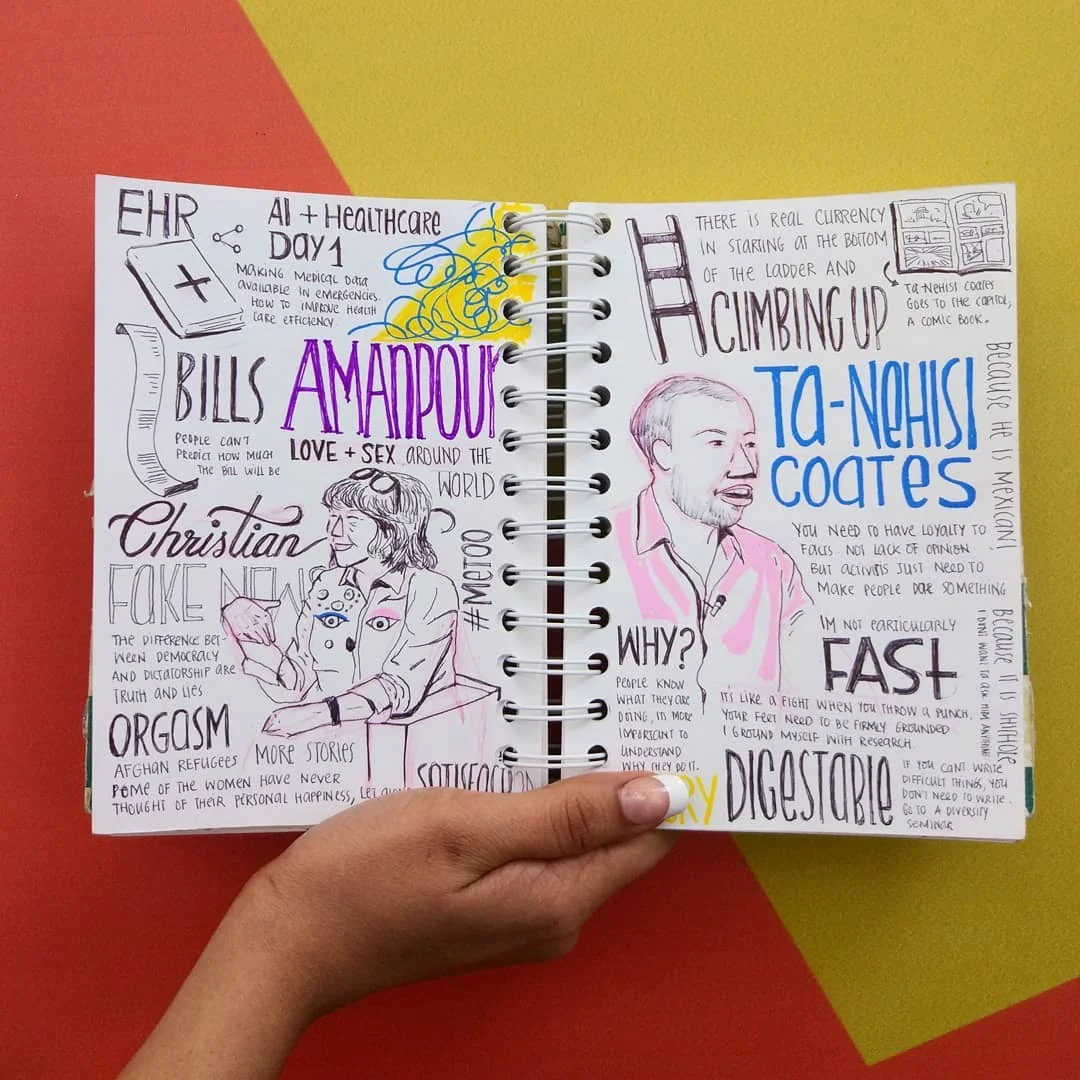 EHR
AI + HEALTHCARE
DAY 1
MAKING MEDICAL DATA
AVAILABLE IN EMERGENCIES.
HOW TO IMPROVE HEALTH
CARE EFFICIENCY.
BILLS
PEOPLE CAN'T
PREDICT HOW MUCH
THE BILL WILL BE
AMANPOUR
LOVE + SEX AROUND THE
WORLD
Christian
FAKE NEWS
#METOO
THE DIFFERENCE BET-
WEEN DEMOCRACY
AND DICTATORSHIP ARE
TRUTH AND LIES
ORGASM
MORE STORIES
AFGHAN REFUGEES
SOME OF THE WOMEN HAVE NEVER
THOUGHT OF THEIR PERSONAL HAPPINESS, LET
SATISFACTION
THERE IS REAL CURRENCY
IN STARTING AT THE BOTTOM
OF THE LADDER AND
CLIMBING UP
TA-NEHISI COATES
GOES TO THE CAPITOL,
A COMIC BOOK.
TA-NEHISI
COATES
BECAUSE HE IS MEXICAN!
YOU NEED TO HAVE LOYALTY TO
FACTS. NOT LACK OF OPINION
BUT ACTIVISTS JUST NEED TO
MAKE PEOPLE DO SOMETHING
WHY?
PEOPLE KNOW
WHAT THEY ARE
DOING, IT'S MORE
IMPORTANT TO
UNDERSTAND
WHY THEY DO IT.
I'M NOT PARTICULARLY
FAST
IT'S LIKE A FIGHT WHEN YOU THROW A PUNCH.
YOUR FEET NEED TO BE FIRMLY GROUNDED.
I GROUND MYSELF WITH RESEARCH.
BECAUSE IT IS SHITHOLE
I DON'T WANT TO ASK HIM ANYTHING
DIGESTABLE
IF YOU CAN'T WRITE
DIFFICULT THINGS, YOU
DON'T NEED TO WRITE.
GO TO A DIVERSITY
SEMINAR